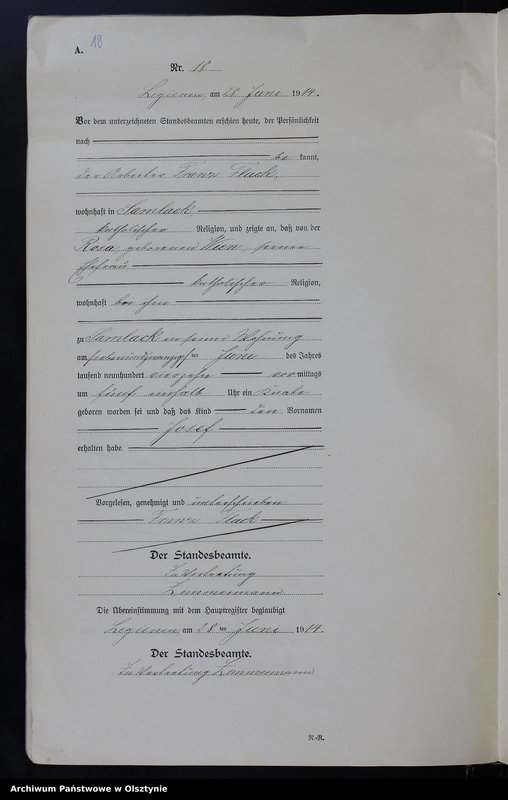 A. 18
Nr. 18
Legienen, am 28 Juni 1914.
Vor dem unterzeichneten Standesbeamten erschien heute, der Persönlichkeit
nach
be kannt,
der Arbeiter Franz Flack,
wohnhaft in Samlack,
katholischer Religion, und zeigte an, daß von der
Rosa, geborenen Wien, seiner
Ehefrau
katholischer Religion,
wohnhaft bei ihm
zu Samlack in seiner Wohnung
am siebenundzwanzigsten Juni des Jahres
tausend neunhundert vierzehn vormittags
um fünf einhalb Uhr ein Knabe
geboren worden sei und daß das Kind den Vornamen
Josef
erhalten habe.
Vorgelesen, genehmigt und unterschrieben
Franz Flack
Der Standesbeamte.
In Vertretung
Zimmermann
Die Übereinstimmung mit dem Hauptregister beglaubigt
Legienen, am 28ten Juni 1914.
Der Standesbeamte.
In Vertretung Zimmermann
N.-R.
Archiwum Państwowe w Olsztynie